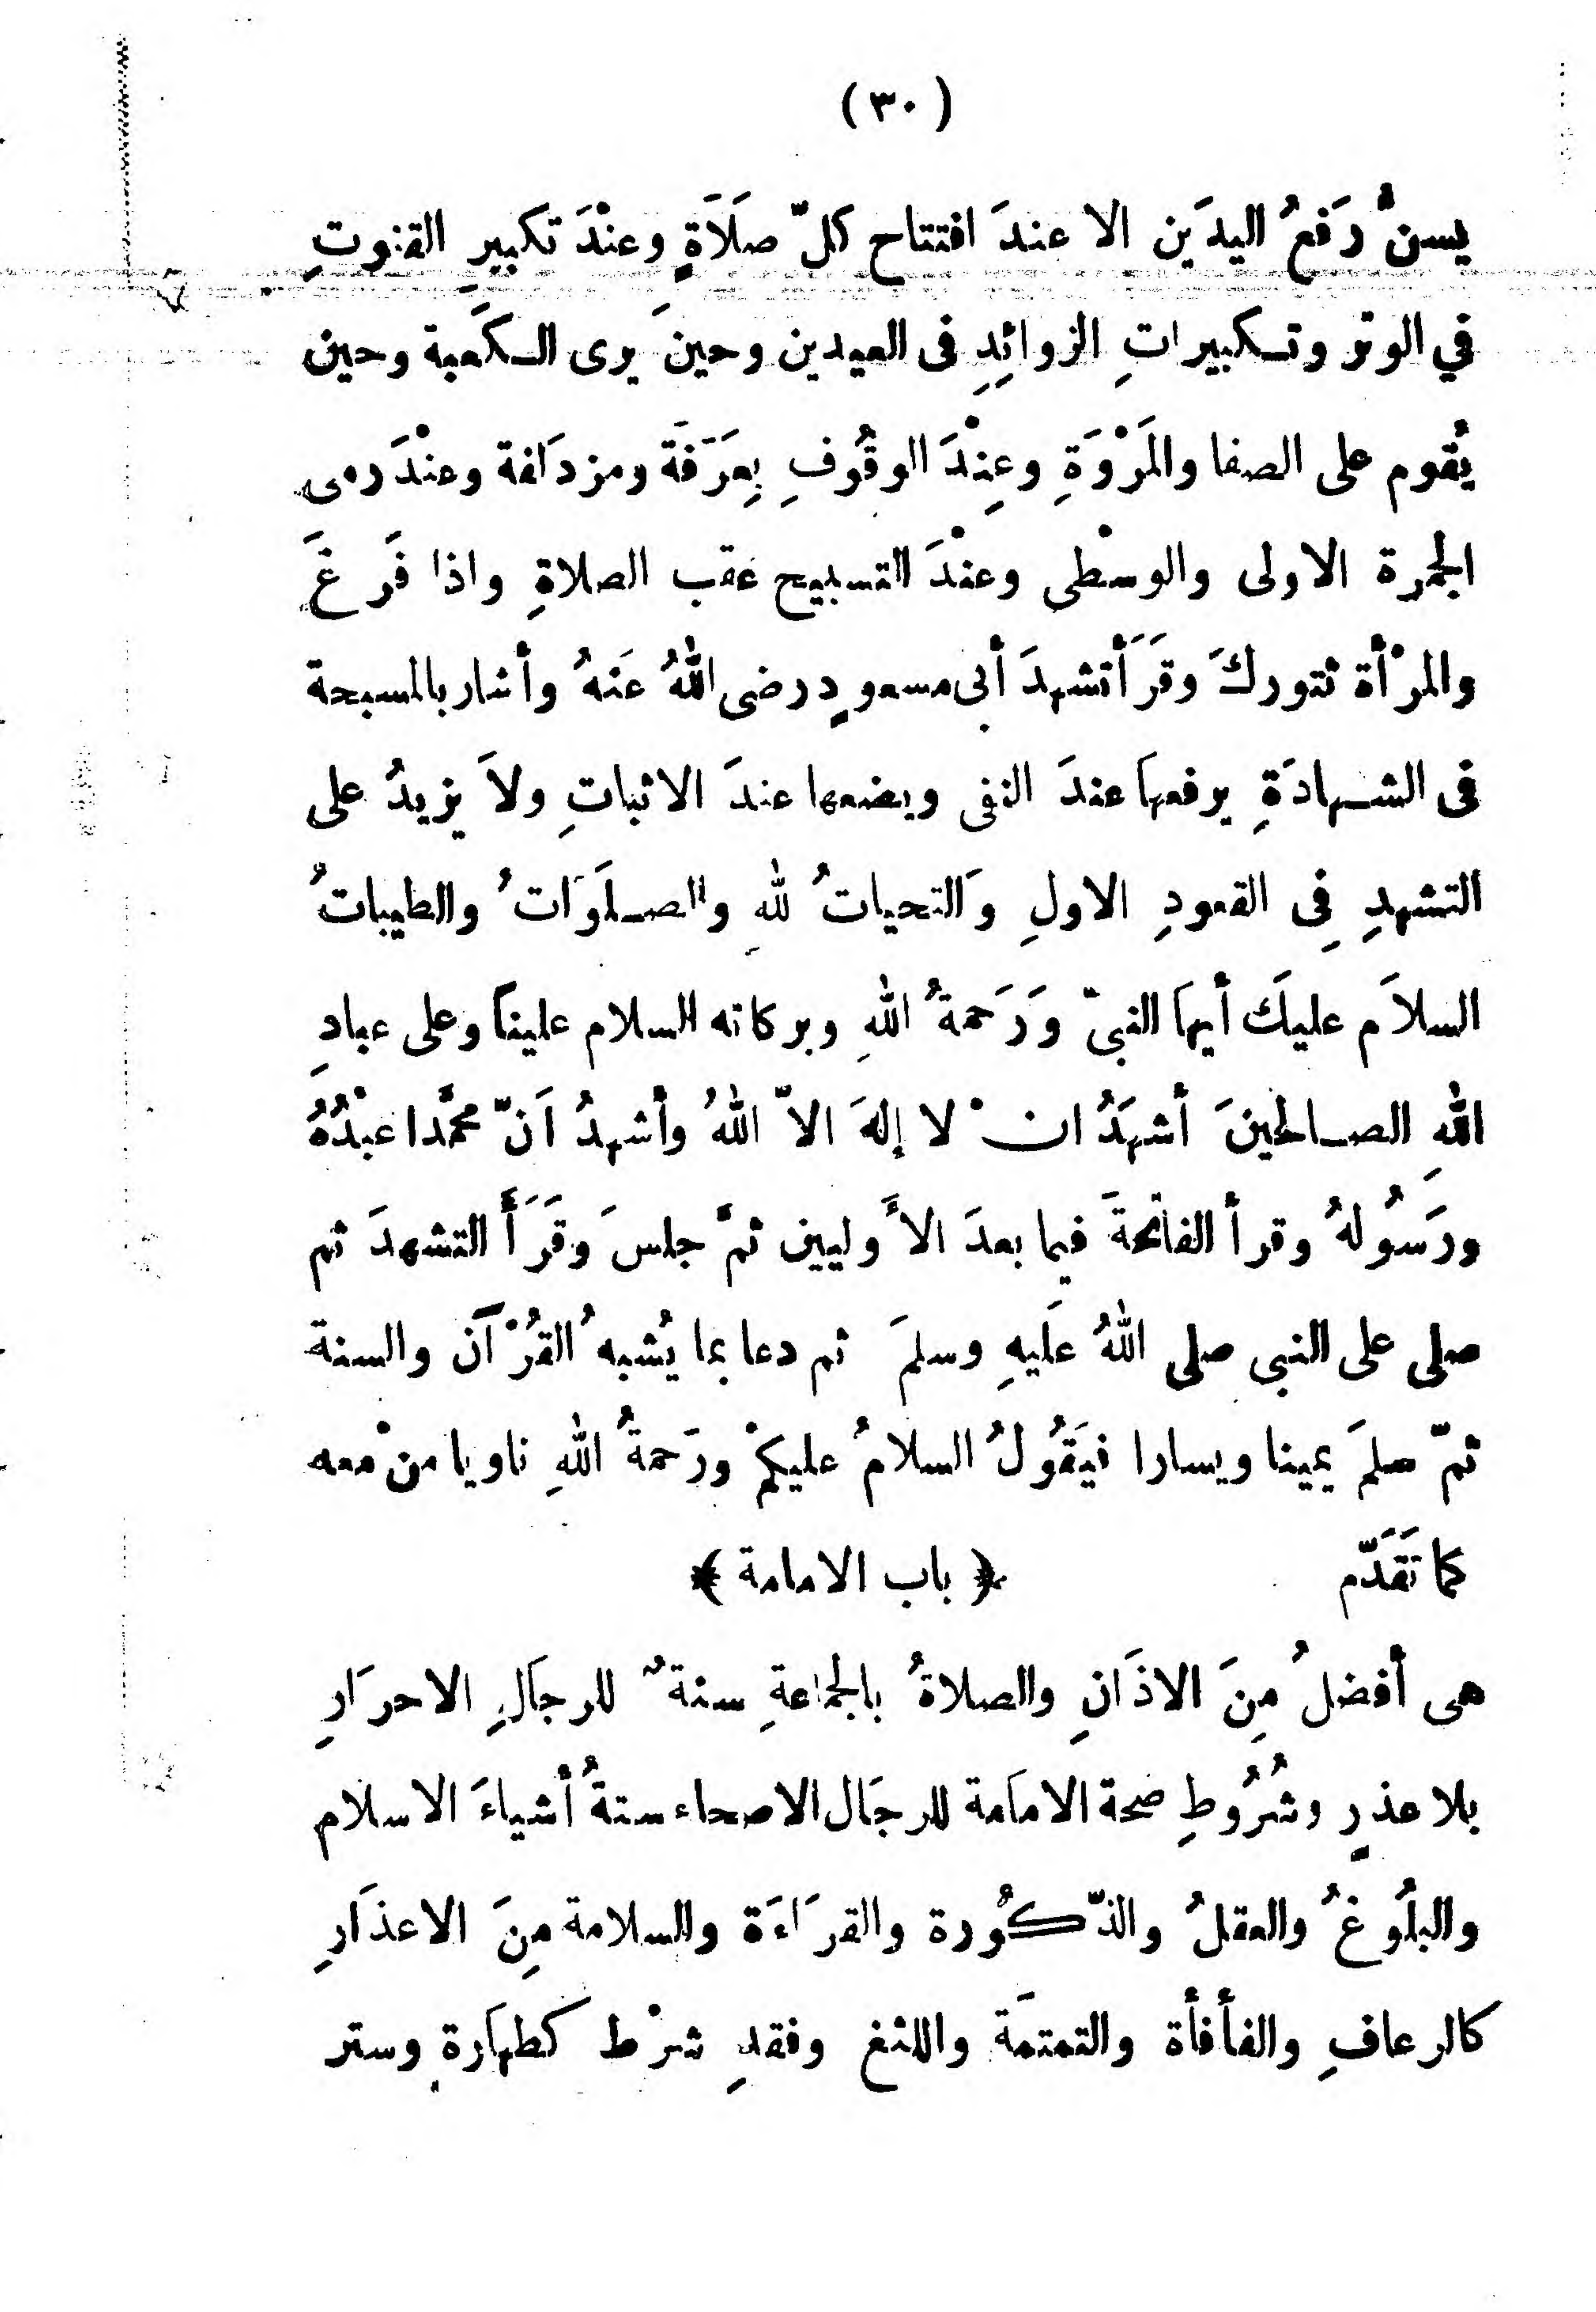 (٣٠)
يسنُّ رَفعُ اليدَين الا عندَ افتتاح كلّ صلَاَةٍ وعنْدَ تكبيرِ القنوتِ
في الوتر وتكبيراتِ الزوائِدِ فى العيدين وحينَ يرى الكعَبة وحين
يُقوم على الصفا والمَرْوَةِ وعِنْدَ الوقُوفِ بِعَرَفَة ومزدَلفة وعنْدَ رمى
الجمرة الاولى والوسْطى وعنْدَ التسبيح عقب الصلاةِ واذا فَرغَ
والمرْأة تتوركَ وقَرَأَ تشهدَ أبى مسعودٍ رضى اللهُ عَنهُ وأشار بالمسبحة
فى الشهادَةِ يرفعهاَ عندَ النفى ويضعها عندَ الاثباتِ ولاَ يزيدُ على
التشهدِ فِى القعودِ الاولِ وَالتحياتُ للهِ والصلَوَاتُ والطيباتُ
السلاَم عليكَ أيهاَ النبىّ وَرَحمةُ اللهِ وبركاته السلام علينَا وعلى عبادِ
اللهِ الصالحينَ أشهَدُ انْ لا إلهَ الاّ اللهُ وأشهدُ اَنّ محمَّدا عبْدُهُ
ورَسُولهُ وقرأ الفاتحةَ فيما بعدَ الأَوليين ثمَّ جلسَ وَقَرَأَ التشهدَ ثم
صلى على النبى صلى اللهُ عَليهِ وسلمَ ثم دعا بما يُشبهُ القُرْآن والسنة
ثمّ سلمَ يمينا ويسارا فيَقُولُ السلامُ عليكمْ ورَحمةُ اللهِ ناويا منْ معه
كما تَقَدّم ﴿ باب الامامة ﴾
هى أفضلُ مِنَ الاذَانِ والصلاةُ بالجماعةِ سنةٌ للرجَالِ الاحرَارِ
بلا عذرٍ وشُرُوطِ صحة الامَامة للرجَال الاصحاء ستةُ أشياءَ الاسلام
والبلُوغُ والعقلُ والذّكُورة والقرَاءَة والسلامة مِنَ الاعذَارِ
كالرعافِ والفأفأة والتمتمَة واللثغ وفقدِ شرْط كطهَارةٍ وستر